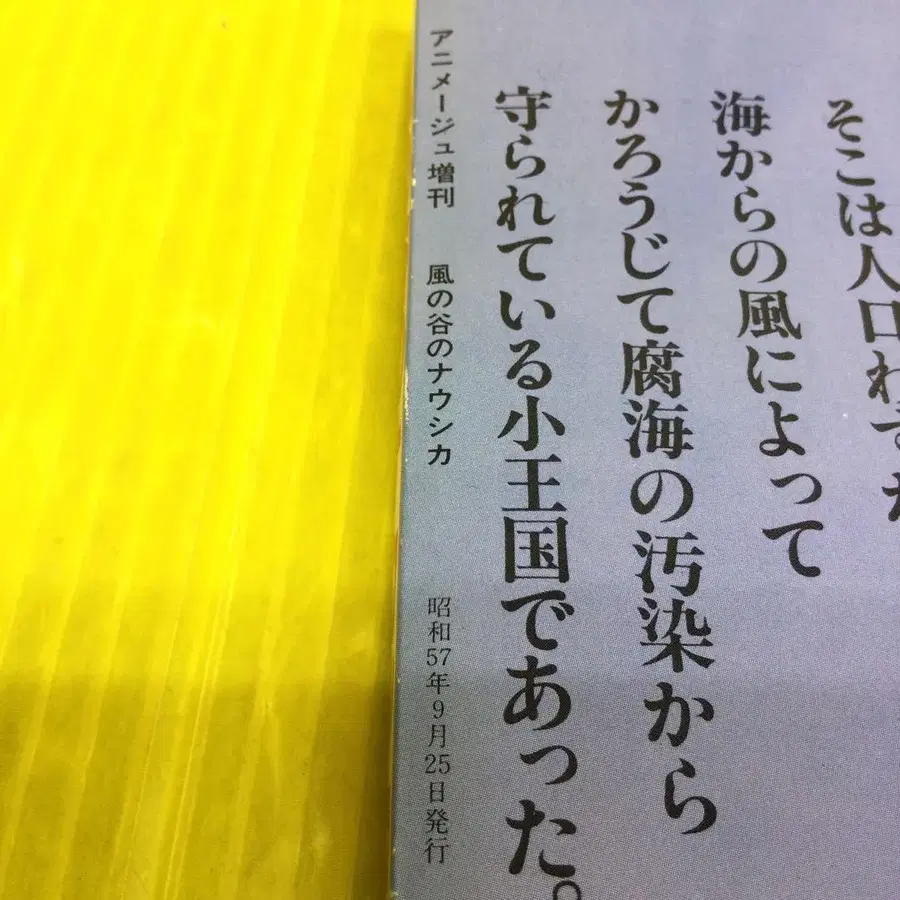 そこは人口わずか
海からの風によって
かろうじて腐海の汚染から
守られている小王国であった。
アニメージュ増刊 風の谷のナウシカ 昭和57年9月25日発行